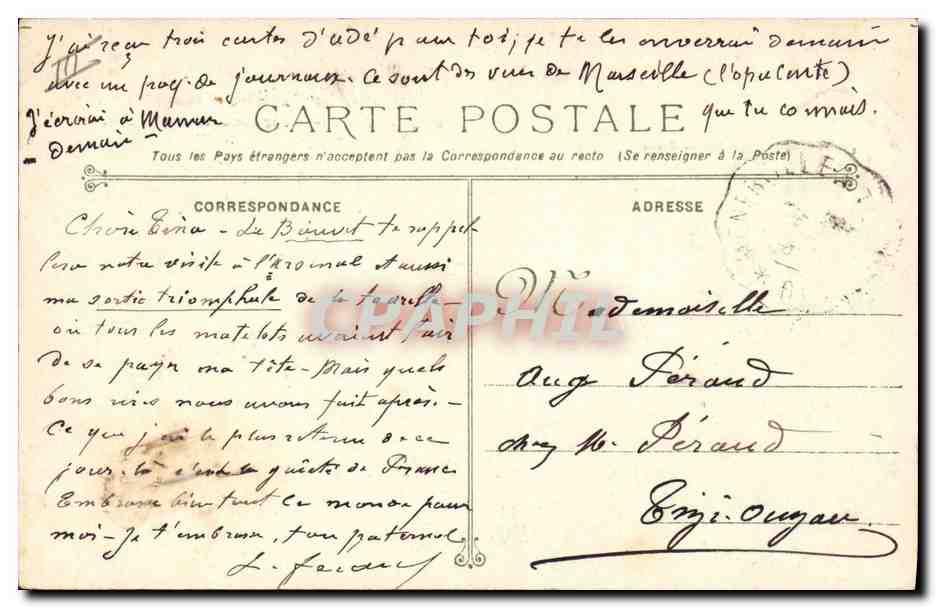 J'ai reçu trois cartes d'adé pour toi; je te les enverrai demain
avec un paq. de journaux. Ce sont des vues de Marseille (l'opulente)
que tu connais.
J'écrirai à Maman
- Demain -
III
CARTE POSTALE
Tous les Pays étrangers n'acceptent pas la Correspondance au recto (Se renseigner à la Poste)
CORRESPONDANCE
Chère Tina - Le Bouvet te rappel-
lera notre visite à l'Arsenal et aussi
ma sortie triomphale de la tourelle -
où tous les matelots avaient l'air
de se payer ma tête - Mais quels
bons rires nous avons fait après. -
Ce que j'ai le plus retenu de ce
jour-là c'est la de France
Embrasse bien tout le monde pour
moi - Je t'embrasse, ton paternel
L.
ADRESSE
Mademoiselle
Aug Féraud
chez M. Féraud
Tizi-Ouzou
CPAPHIL